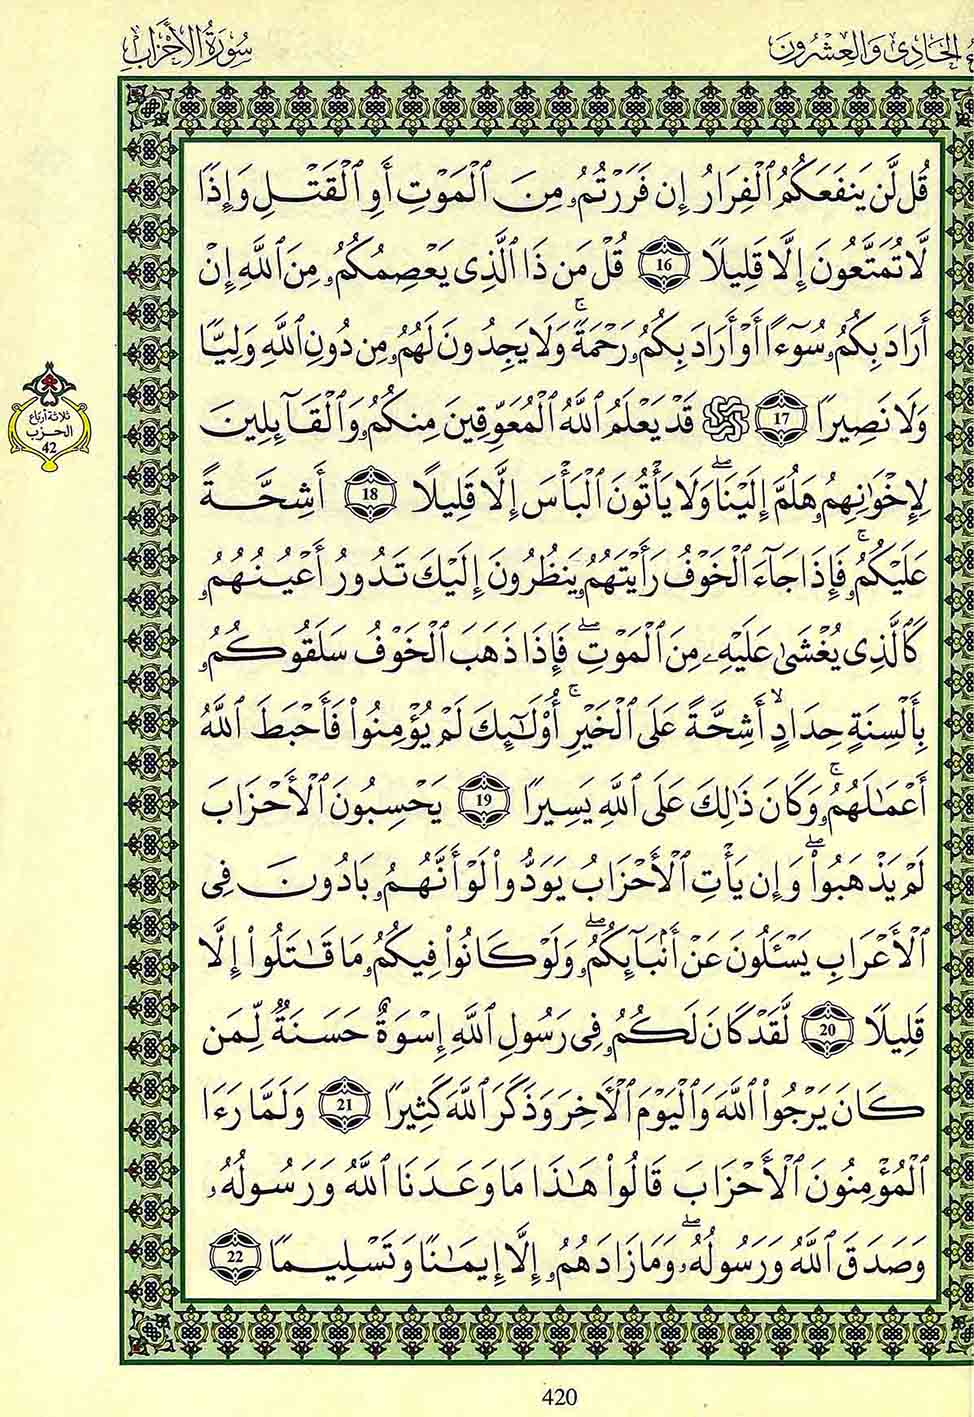 ءُ الحَادِى وَالعِشْرُونَ
سُورَةُ الأَحْزَابِ
قُل لَّن يَنفَعَكُمُ ٱلْفِرَارُ إِن فَرَرْتُمُۥ مِنَ ٱلْمَوْتِ أَوِ ٱلْقَتْلِ وَإِذًا
لَّا تُمَتَّعُونَ إِلَّا قَلِيلًا 16 قُلْ مَن ذَا ٱلَّذِى يَعْصِمُكُمُۥ مِنَ ٱللَّهِ إِنْ
أَرَادَ بِكُمُۥ سُوٓءًا أَوْ أَرَادَ بِكُمُۥ رَحْمَةًۚ وَلَا يَجِدُونَ لَهُمُۥ مِن دُونِ ٱللَّهِ وَلِيًّا
وَلَا نَصِيرًا 17 ۞ قَدْ يَعْلَمُ ٱللَّهُ ٱلْمُعَوِّقِينَ مِنكُمُۥ وَٱلْقَآئِلِينَ
لِإِخْوَٰنِهِمُۥ هَلُمَّ إِلَيْنَاۖ وَلَا يَأْتُونَ ٱلْبَأْسَ إِلَّا قَلِيلًا 18 أَشِحَّةً
عَلَيْكُمُۥۚ فَإِذَا جَآءَ ٱلْخَوْفُ رَأَيْتَهُمُۥ يَنظُرُونَ إِلَيْكَ تَدُورُ أَعْيُنُهُمُۥ
كَٱلَّذِى يُغْشَىٰ عَلَيْهِۦ مِنَ ٱلْمَوْتِۖ فَإِذَا ذَهَبَ ٱلْخَوْفُ سَلَقُوكُمُۥ
بِأَلْسِنَةٍ حِدَادٍۙ أَشِحَّةً عَلَى ٱلْخَيْرِۚ أُوْلَٰٓئِكَ لَمْ يُؤْمِنُواْ فَأَحْبَطَ ٱللَّهُ
أَعْمَٰلَهُمُۥۚ وَكَانَ ذَٰلِكَ عَلَى ٱللَّهِ يَسِيرًا 19 يَحْسِبُونَ ٱلْأَحْزَابَ
لَمْ يَذْهَبُواْۖ وَإِن يَأْتِ ٱلْأَحْزَابُ يَوَدُّواْ لَوْ أَنَّهُمُۥ بَادُونَ فِى
ٱلْأَعْرَابِ يَسْـَٔلُونَ عَنْ أَنۢبَآئِكُمُۥۖ وَلَوْ كَانُواْ فِيكُمُۥ مَا قَٰتَلُواْ إِلَّا
قَلِيلًا 20 لَّقَدْ كَانَ لَكُمُۥ فِى رَسُولِ ٱللَّهِ إِسْوَةٌ حَسَنَةٌ لِّمَن
كَانَ يَرْجُواْ ٱللَّهَ وَٱلْيَوْمَ ٱلْأَخِرَ وَذَكَرَ ٱللَّهَ كَثِيرًا 21 وَلَمَّا رَءَا
ٱلْمُؤْمِنُونَ ٱلْأَحْزَابَ قَالُواْ هَٰذَا مَا وَعَدَنَا ٱللَّهُ وَرَسُولُهُۥ
وَصَدَقَ ٱللَّهُ وَرَسُولُهُۥۖ وَمَا زَادَهُمُۥ إِلَّا إِيمَٰنًا وَتَسْلِيمًا 22
ثلاثة أرباع
الحزب
42
420